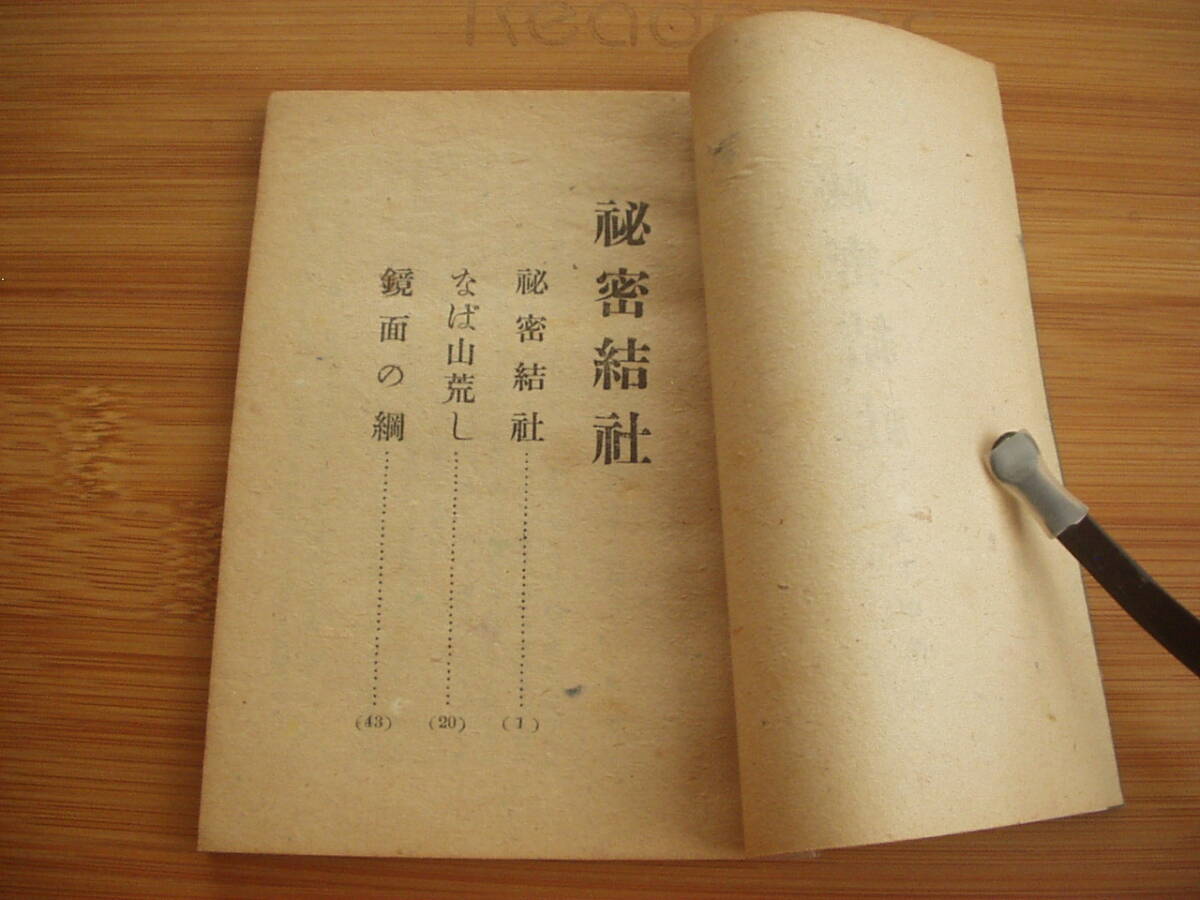 祕密結社
祕密結社……(1)
なば山荒し……(20)
鏡面の綱……(43)